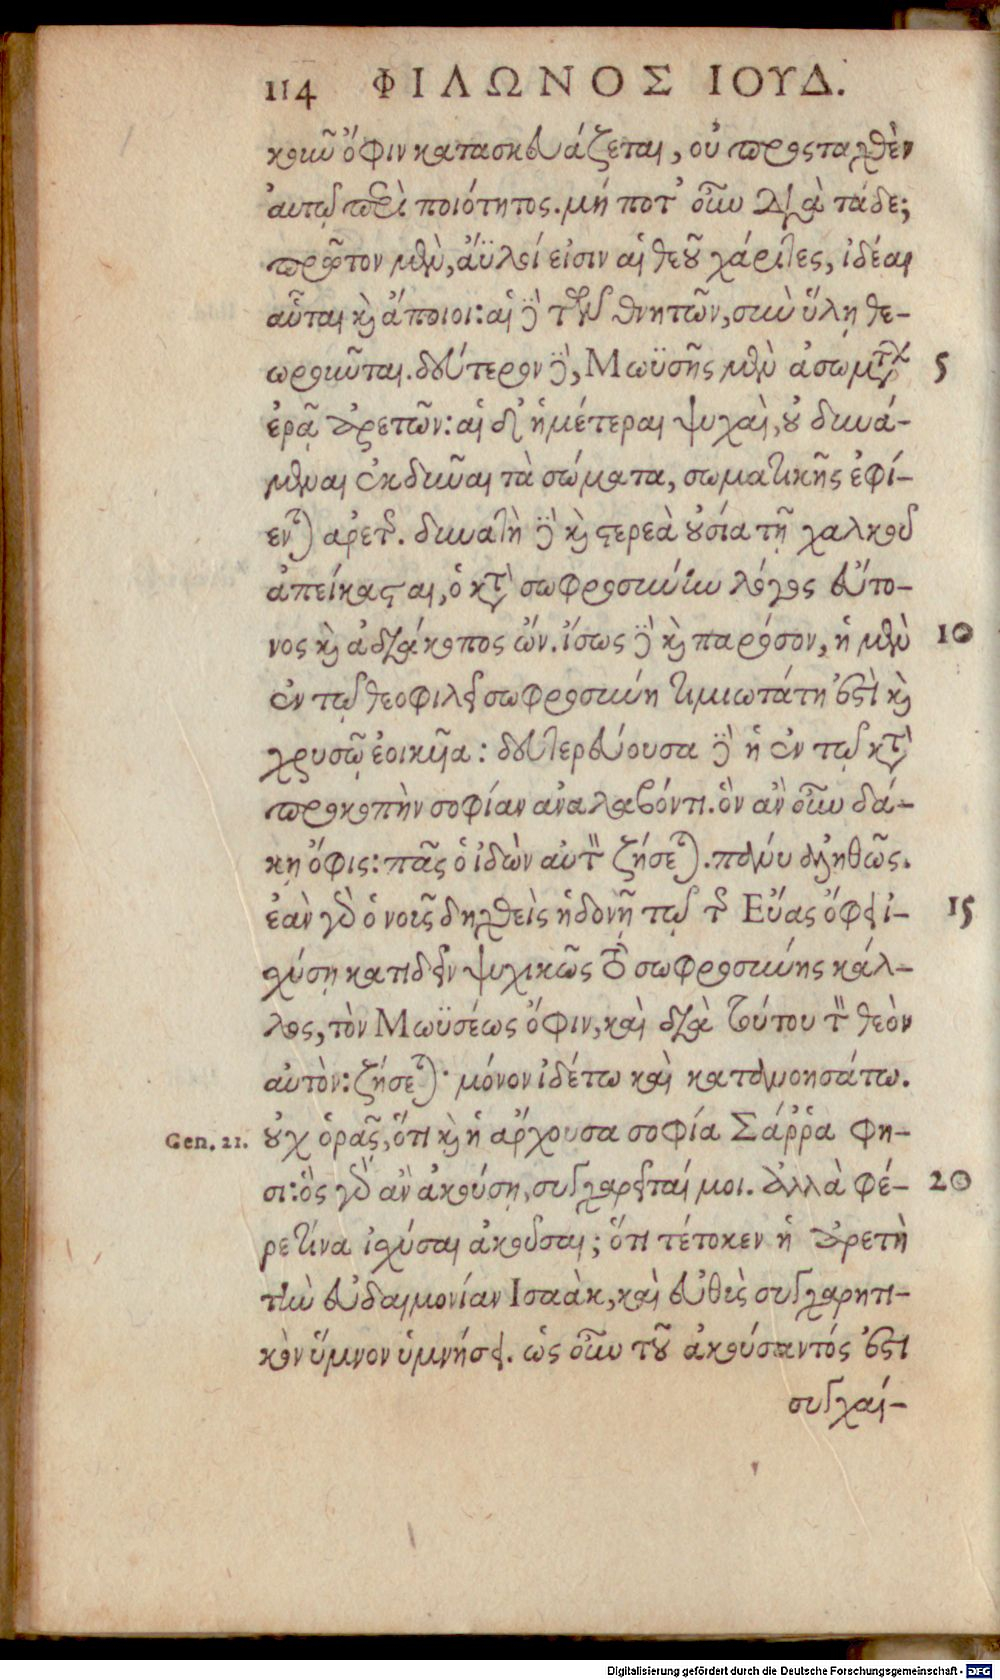 114 ΦΙΛΩΝΟΣ ΙΟΥΔ.
κοῦν ὄφιν κατασκευάζεται, οὐ προσταχθὲν
αὐτῷ περὶ ποιότητος. μή ποτ' οὖν διὰ τάδε;
πρῶτον μὲν, ἄϋλοί εἰσιν αἱ θεοῦ χάριτες, ἰδέαι
αὗται καὶ ἄποιοι: αἱ δὲ τῶν θνητῶν, σὺν ὕλῃ θε-
ωροῦνται. δεύτερον δὲ, Μωϋσῆς μὲν ἀσωμάτων 5
ἐρᾷ ἀρετῶν: αἱ δ' ἡμέτεραι ψυχαὶ, οὐ δυνά-
μεναι ἐκδῦναι τὰ σώματα, σωματικῆς ἐφί-
ενται ἀρετῆς. δυνατῇ δὲ καὶ στερεᾷ οὐσίᾳ τῇ χαλκοῦ
ἀπείκασται, ὁ κατὰ σωφροσύνην λόγος εὔτο-
νος καὶ ἀδιάκοπος ὤν. ἴσως δὲ καὶ παρόσον, ἡ μὲν 10
ἐν τῷ θεοφιλεῖ σωφροσύνη τιμιωτάτη ἐστὶ καὶ
χρυσῷ ἐοικυῖα: δευτερεύουσα δὲ ἡ ἐν τῷ κατὰ
προκοπὴν σοφίαν ἀναλαβόντι. ὃν ἂν οὖν δά-
κῃ ὄφις: πᾶς ὁ ἰδὼν αὐτὸν ζήσεται. πάνυ ἀληθῶς.
ἐὰν γὰρ ὁ νοῦς δηχθεὶς ἡδονῇ τῷ τῆς Εὔας ὄφει ἰ- 15
σχύσῃ κατιδεῖν ψυχικῶς τὸ σωφροσύνης κάλ-
λος, τὸν Μωϋσέως ὄφιν, καὶ διὰ τούτου τὸν θεὸν
αὐτὸν: ζήσεται· μόνον ἰδέτω καὶ κατανοησάτω.
Gen. 21. οὐχ ὁρᾷς, ὅτι καὶ ἡ ἄρχουσα σοφία Σάῤῥα φη-
σι: ὃς γὰρ ἂν ἀκούσῃ, συγχαρεῖταί μοι. ἀλλὰ φέ- 20
ρε τινα ἰσχύσαι ἀκοῦσαι; ὅτι τέτοκεν ἡ ἀρετὴ
τὴν εὐδαιμονίαν Ἰσαὰκ, καὶ εὐθὺς συγχαρητι-
κὸν ὕμνον ὑμνήσει. ὡς οὖν τοῦ ἀκούσαντός ἐστι
συγχαί-
Digitalisierung gefördert durch die Deutsche Forschungsgemeinschaft - DFG